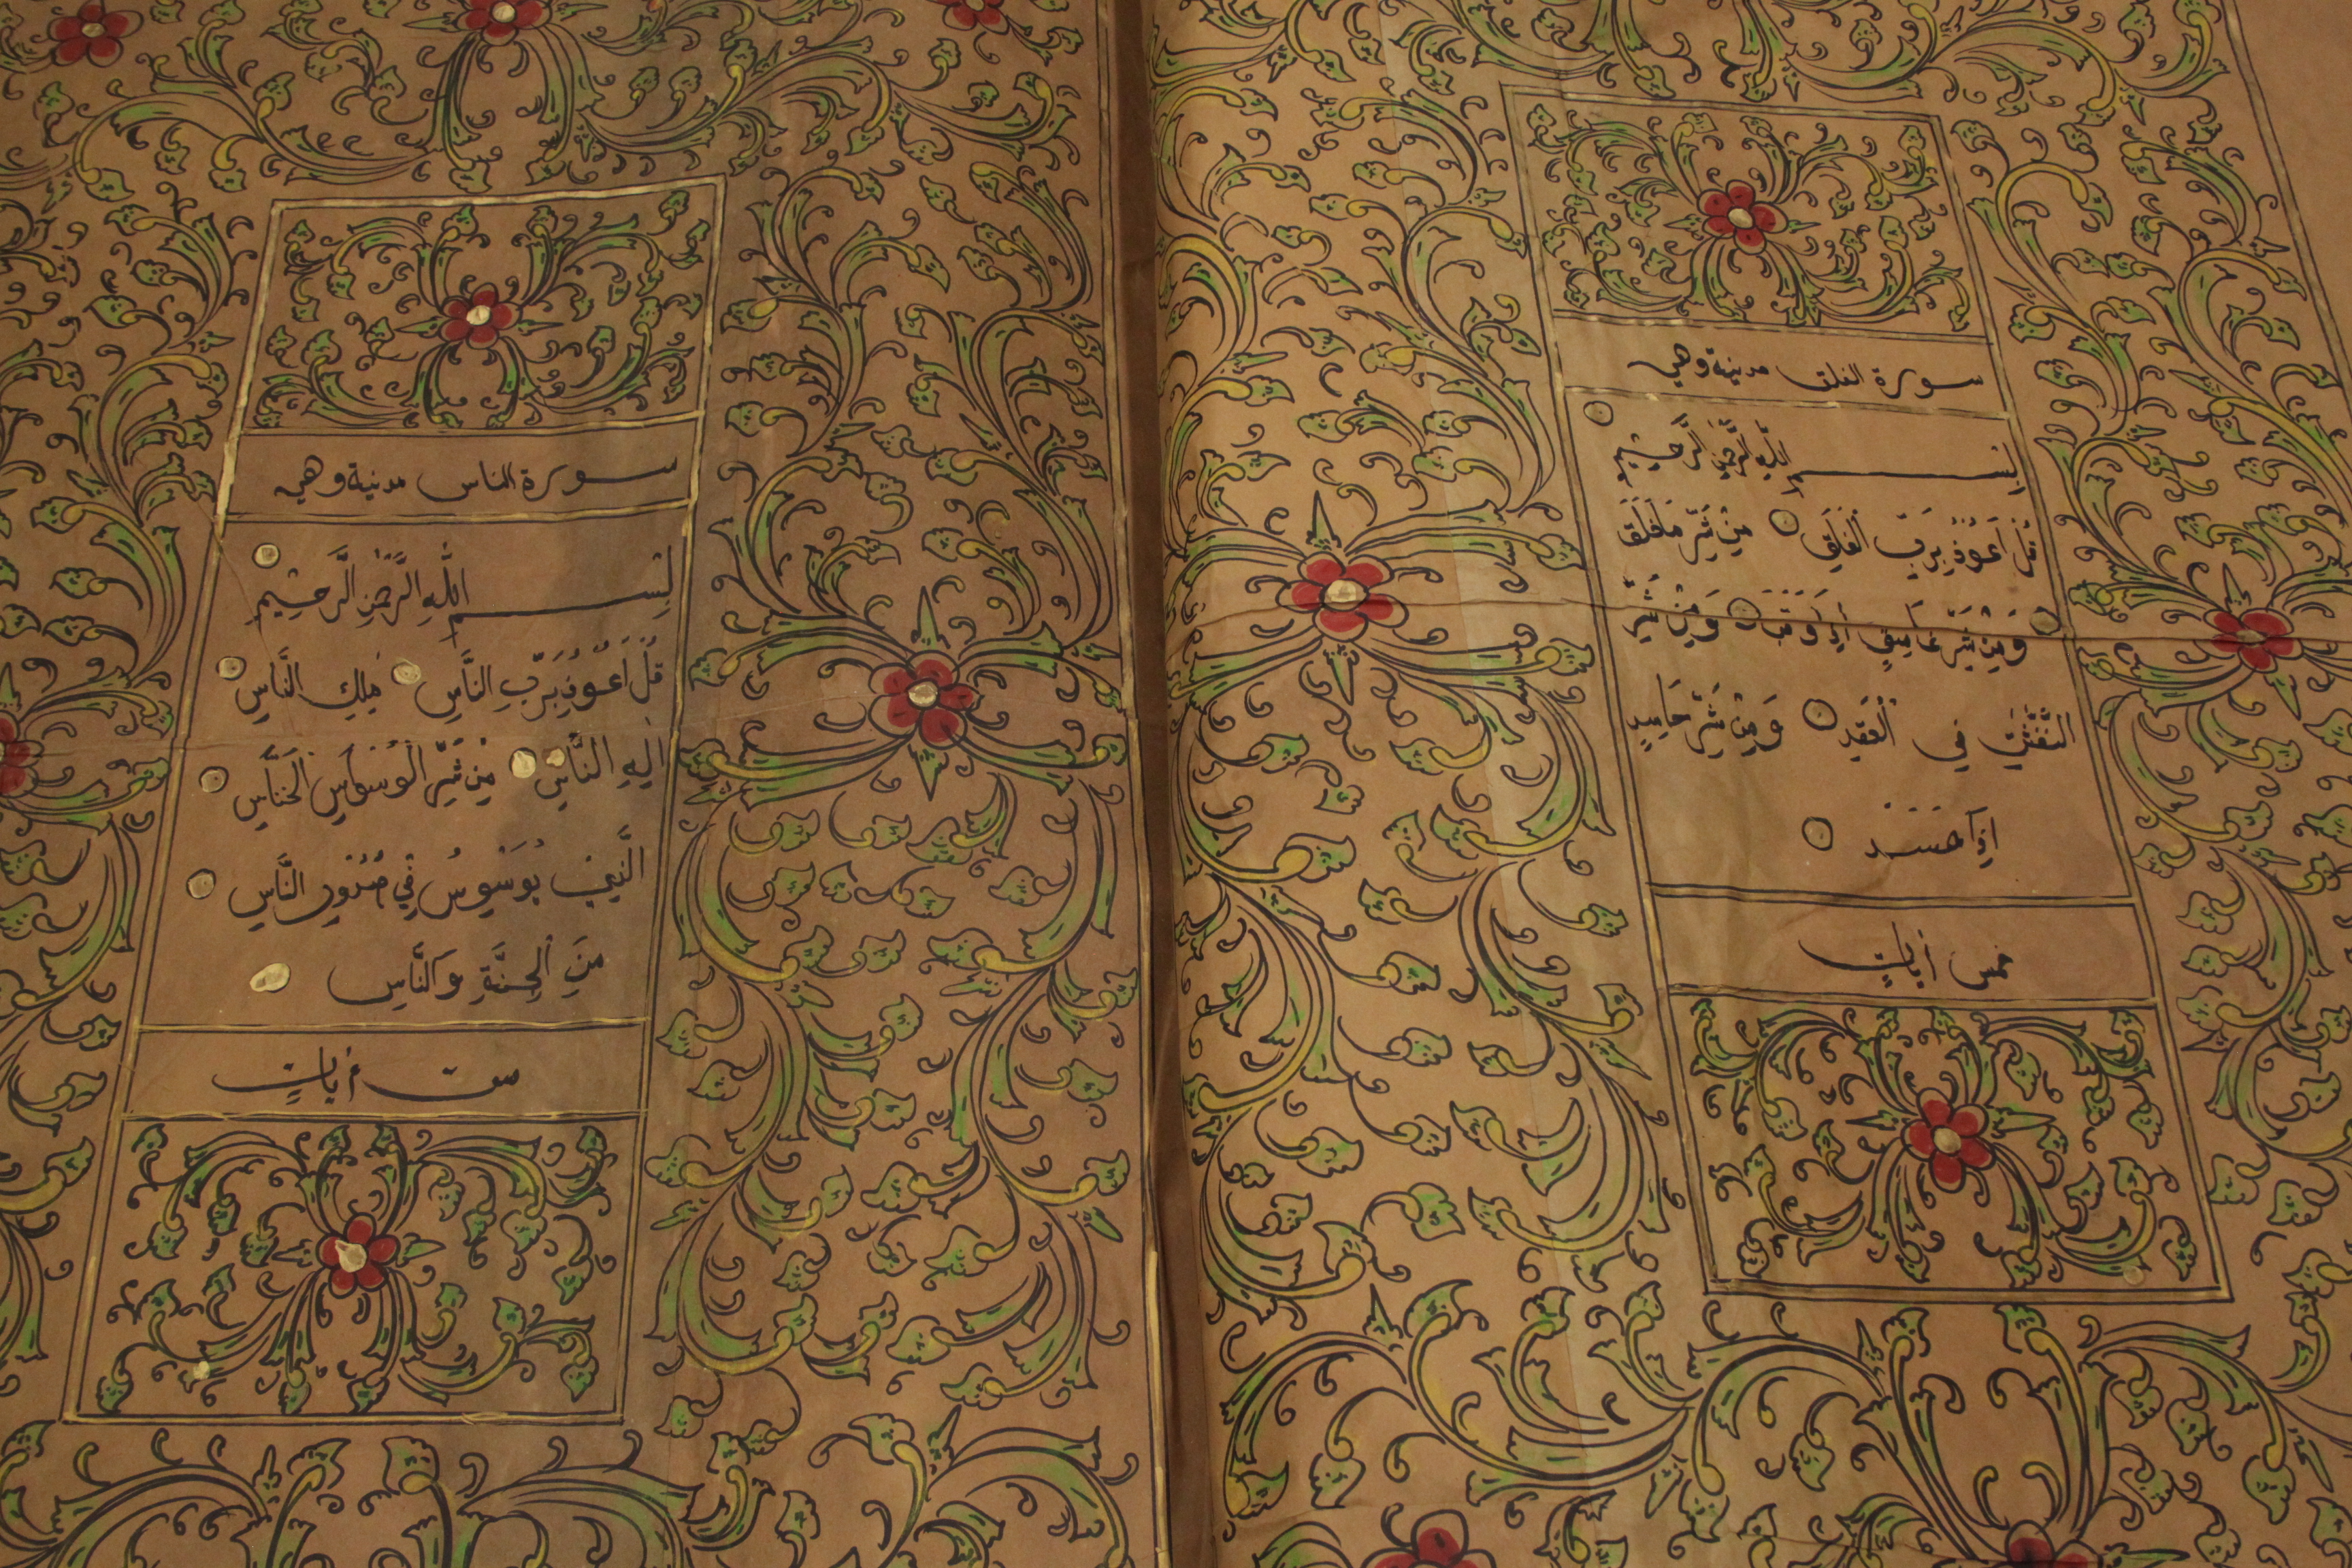 سورة الفلق مدنية وهي
بِسْمِ اللّٰهِ الرَّحْمٰنِ الرَّحِيْمِ
قُلْ اَعُوْذُ بِرَبِّ الْفَلَقِ مِنْ شَرِّ مَا خَلَقَ
وَمِنْ شَرِّ غَاسِقٍ اِذَا وَقَبَ وَمِنْ شَرِّ
النَّفّٰثٰتِ فِي الْعُقَدِ وَمِنْ شَرِّ حَاسِدٍ
اِذَا حَسَدَ
خمس أياتٍ
سورة الناس مدنية وهي
بِسْمِ اللّٰهِ الرَّحْمٰنِ الرَّحِيْمِ
قُلْ اَعُوْذُ بِرَبِّ النَّاسِ مَلِكِ النَّاسِ
اِلٰهِ النَّاسِ مِنْ شَرِّ الْوَسْوَاسِ الْخَنَّاسِ
الَّذِيْ يُوَسْوِسُ فِيْ صُدُوْرِ النَّاسِ
مِنَ الْجِنَّةِ وَالنَّاسِ
ست أياتٍ